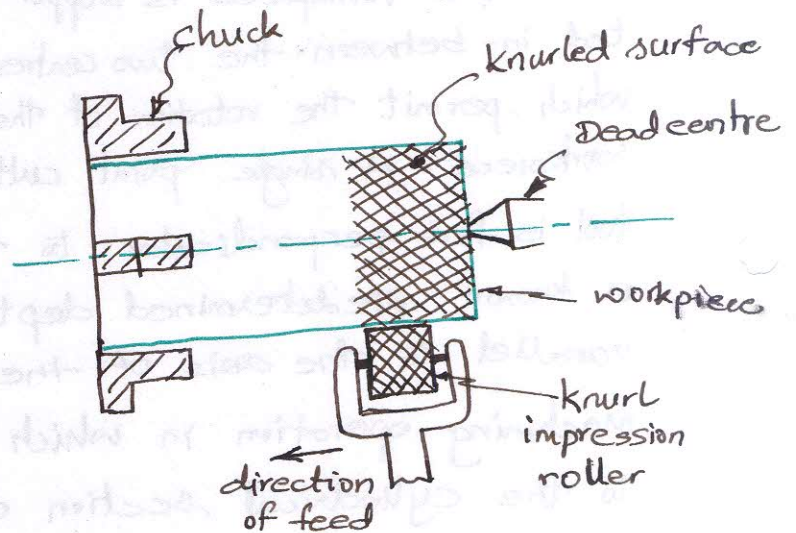 chuck
Knurled surface
Dead centre
workpiece
Knurl
impression
roller
direction
of feed